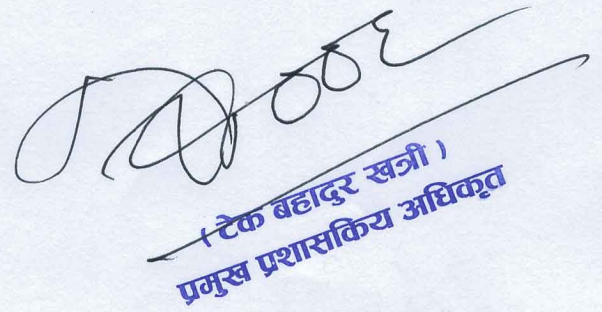 ( टेक बहादुर खत्री )
प्रमुख प्रशासकिय अधिकृत